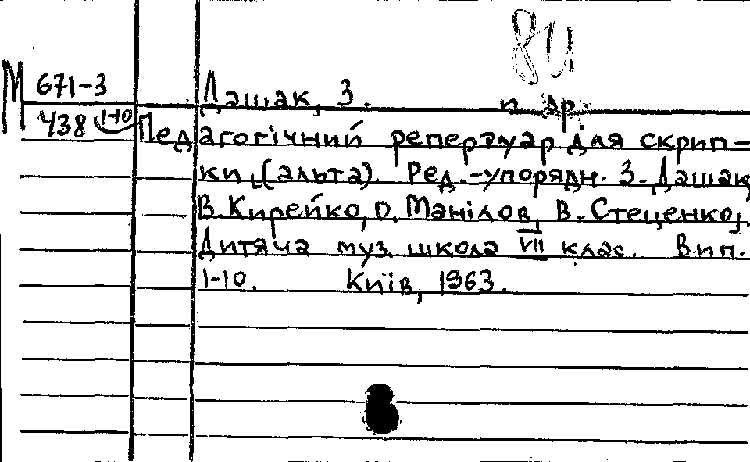 М 671-3
438 1-10
Дашак, З. п др.
Педагогічний репертуар для скрип-
ки (альта). Ред.-упорядн. З. Дашак,
В. Кирейко, О. Манілов, В. Стеценко,
Дитяча муз. школа VII клас. Вип.
1-10. Київ, 1963.